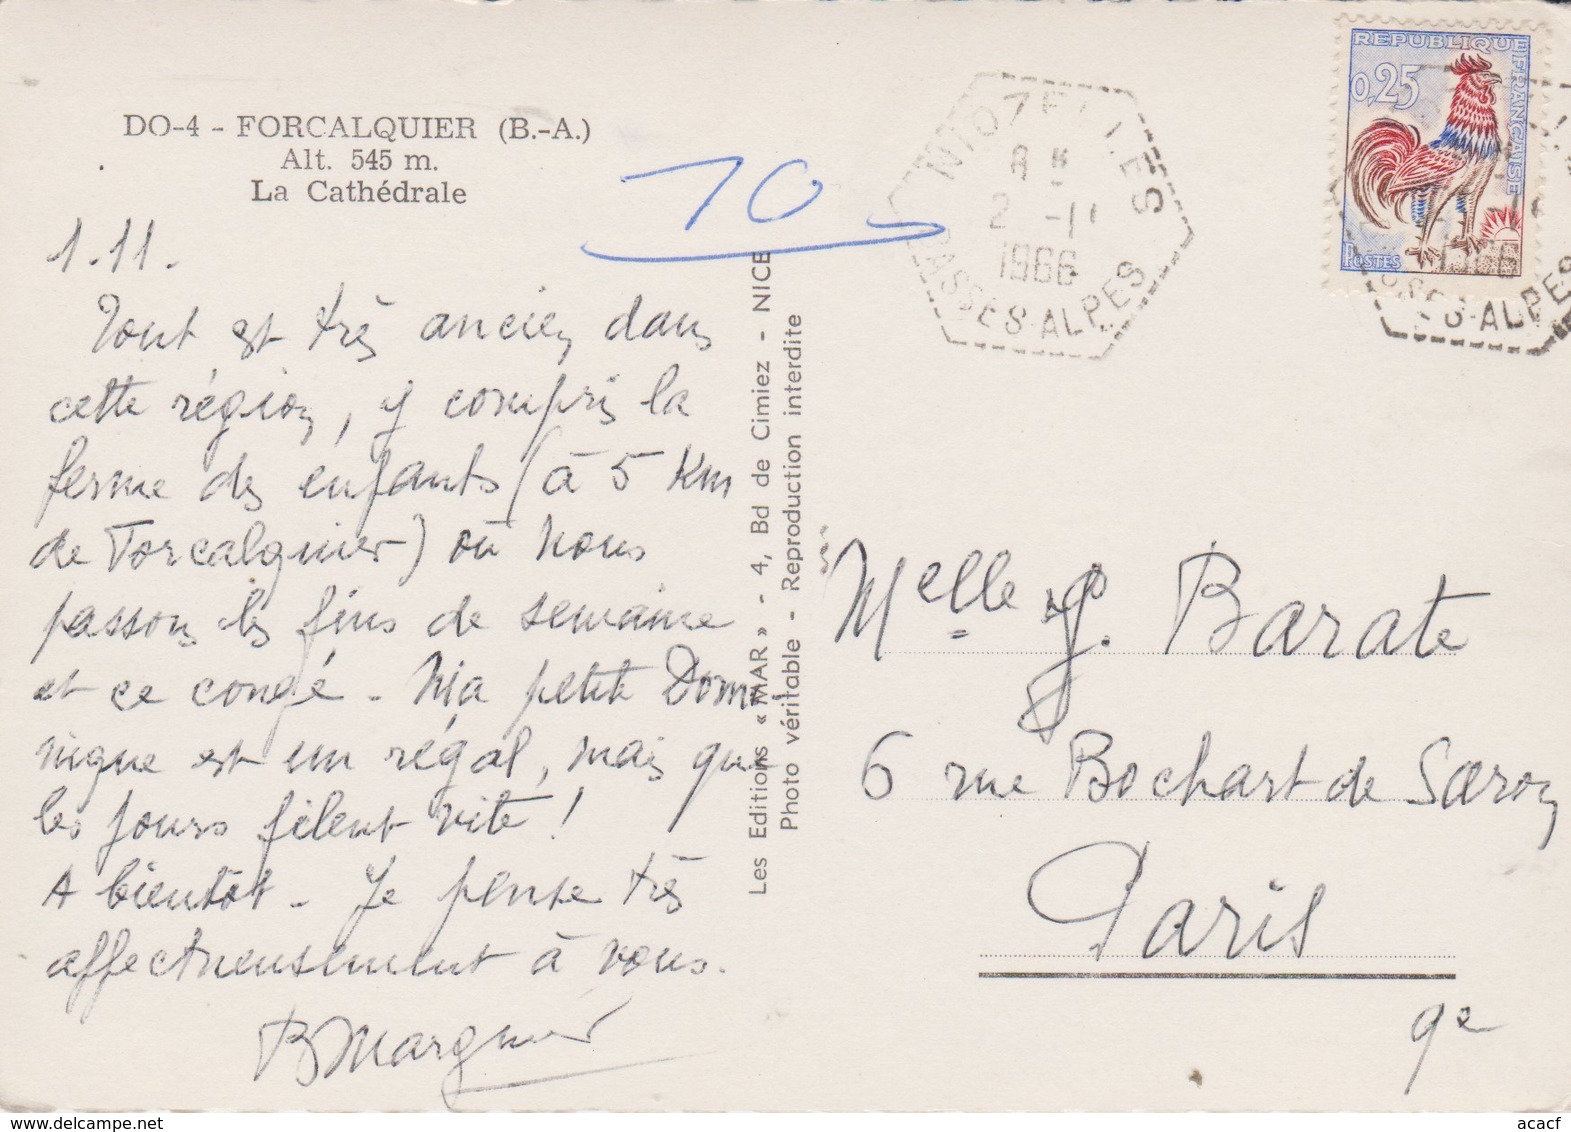 DO-4 - FORCALQUIER (B.-A.)
Alt. 545 m.
La Cathédrale
1.11.
Tout est très ancien dans
cette région, y compris la
ferme des enfants (à 5 Km
de Forcalquier) où nous
passons les fins de semaine
et ce congé - Ma petite Domi
nique est un régal, mais que
les jours filent vite !
A bientôt - Je pense très
affectueusement à vous.
BMarguier
10
Les Editions « MAR » - 4, Bd de Cimiez - NICE
Photo véritable - Reproduction interdite
NIOZELLES
2 -11
1966
BASSES-ALPES
REPUBLIQUE FRANÇAISE
0,25
POSTES
ALPES
Melle J. Barate
6 rue Bochart de Saron
Paris
9e
www.delcampe.net
acacf